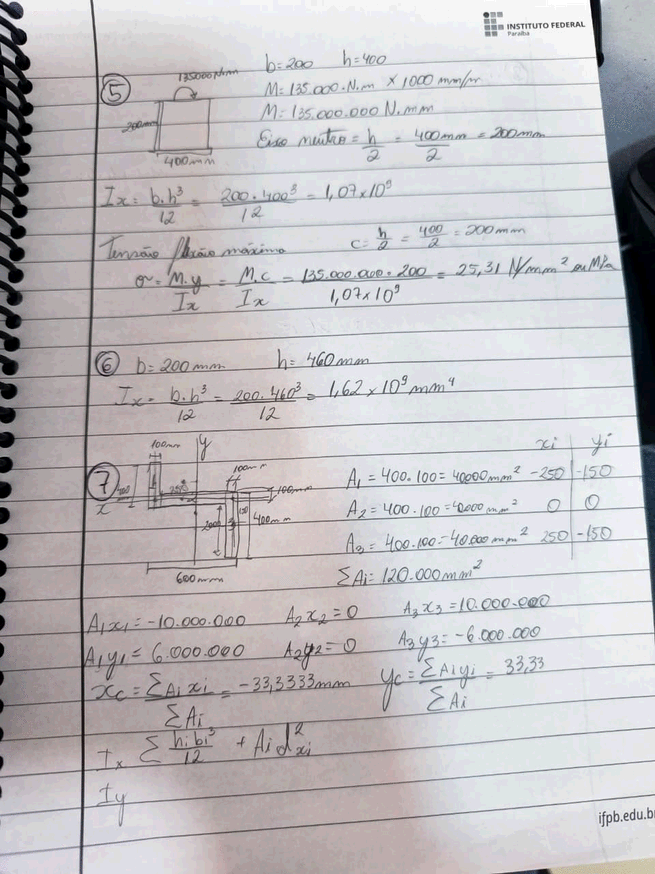 INSTITUTO FEDERAL
Paraíba
b=200 h=400
5
135000 N.m
M=135.000.N.m × 1000 mm/m
M=135.000.000 N.mm
200mm
400mm
Eixo neutro = h/2 = 400mm/2 = 200mm
Ix = b.h³/12 = 200.400³/12 = 1,07×10⁹
Tensão flexão máxima c = h/2 = 400/2 = 200mm
σ = M.y/Ix = M.c/Ix = 135.000.000.200/1,07×10⁹ = 25,31 N/mm² ou MPa
6 b=200mm h=460mm
Ix = b.h³/12 = 200.460³/12 = 1,62×10⁹ mm⁴
7
100mm
y
x
100mm
400mm
600mm
xi yi
A₁ = 400.100 = 40000 mm² -250 -150
A₂ = 400.100 = 40.000 mm² 0 0
A₃ = 400.100 = 40.000 mm² 250 -150
ΣAi = 120.000mm²
A₁x₁ = -10.000.000 A₂x₂ = 0 A₃x₃ = 10.000.000
A₁y₁ = 6.000.000 A₂y₂ = 0 A₃y₃ = -6.000.000
xc = ΣAi xi/ΣAi = -33,3333mm yc = ΣAiyi/ΣAi = 33,33
Ix Σ hibi³/12 + Ai d²xi
Iy
ifpb.edu.b